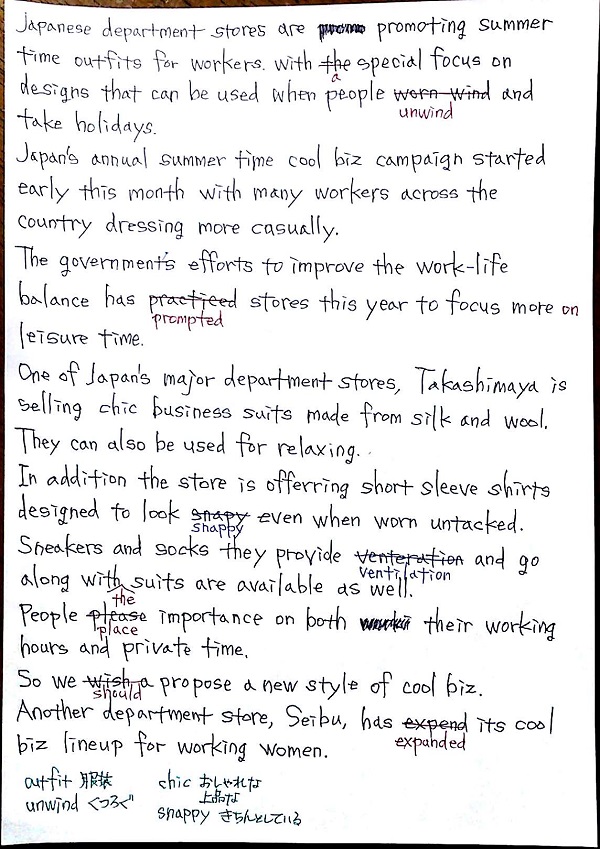 Japanese department stores are promo promoting summer
time outfits for workers. with the special focus on
a
designs that can be used when people worn wind and
unwind
take holidays.
Japan's annual summer time cool biz campaign started
early this month with many workers across the
country dressing more casually.
The government's efforts to improve the work-life
balance has practiced stores this year to focus more on
prompted
leisure time.
One of Japan's major department stores, Takashimaya is
selling chic business suits made from silk and wool.
They can also be used for relaxing.
In addition the store is offerring short sleeve shirts
designed to look snapy even when worn untacked.
snappy
Sneakers and socks they provide venteration and go
ventilation
along with suits are available as well.
the
People please importance on both their working
place
hours and private time.
So we wish a propose a new style of cool biz.
should
Another department store, Seibu, has expend its cool
expanded
biz lineup for working women.
outfit 服装 chic おしゃれな
上品な
unwind くつろぐ
snappy きちんとしている